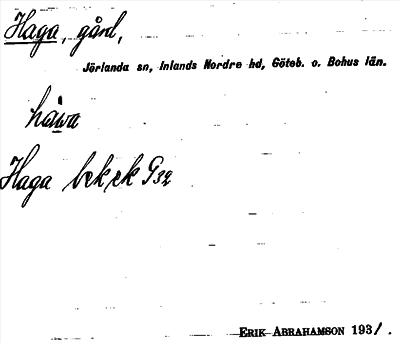 Haga, gård,
Jörlanda sn, Inlands Nordre hd, Göteb. o. Bohus län.
Haga bekek G32
ERIK ABRAHAMSON 1931.